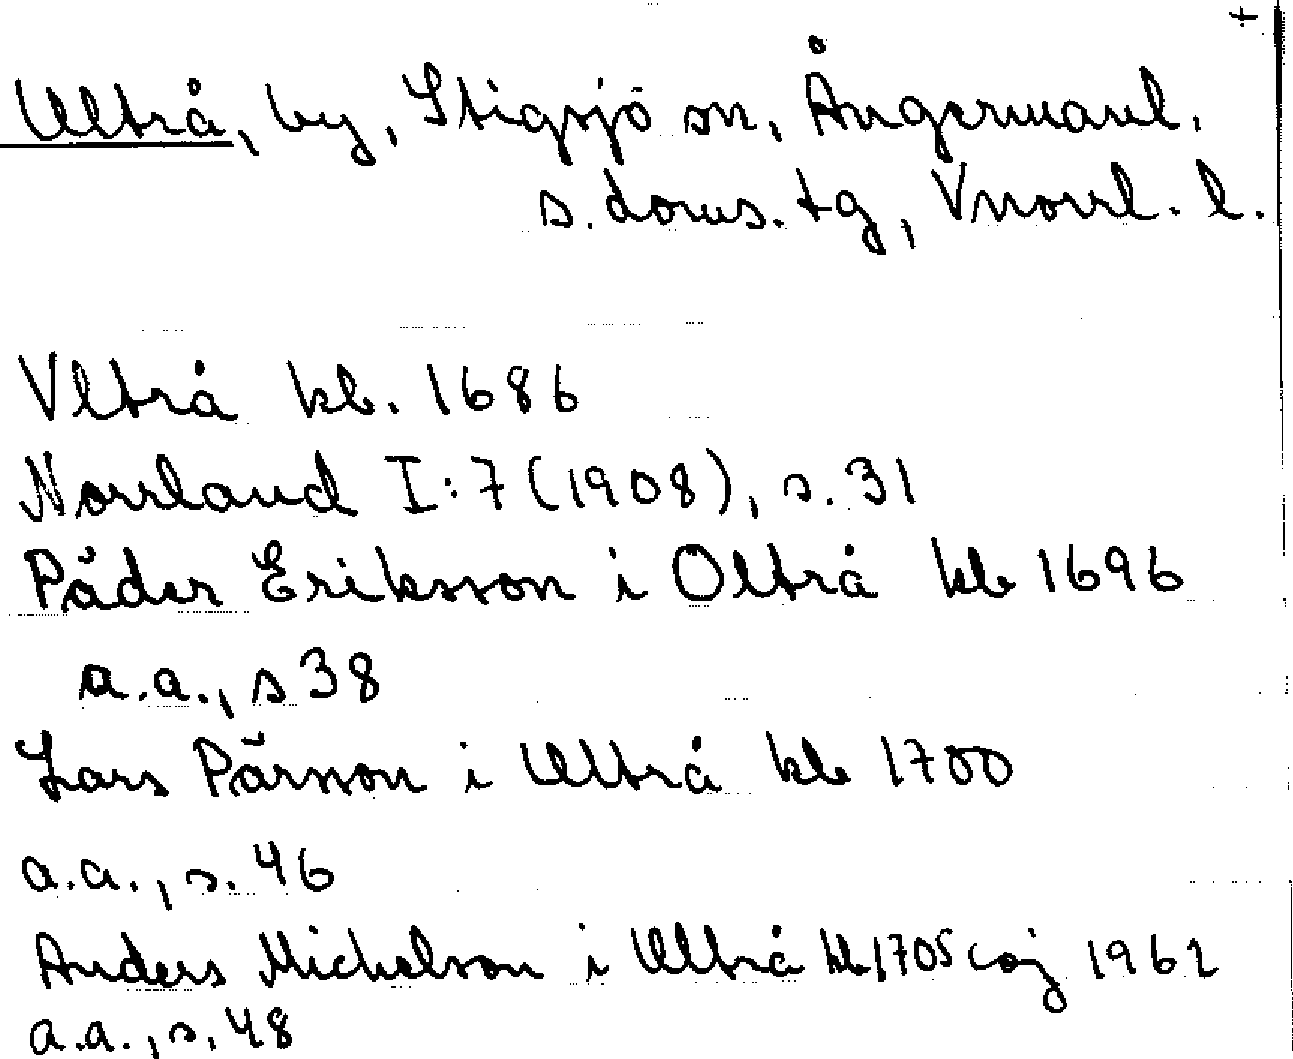 Ultrå, by, Stigsjö sn, Ångermanl.
s. doms. tg, Vnorrl. l.
Vltrå kb. 1686
Norrland I:7 (1908), s. 31
Påder Eriksson i Oltrå kb 1696
a.a., s 38
Lars Pärsson i Ultrå kb 1700
a.a., s. 46
Anders Michelson i Ultrå kb 1705 1962
a.a., s. 48